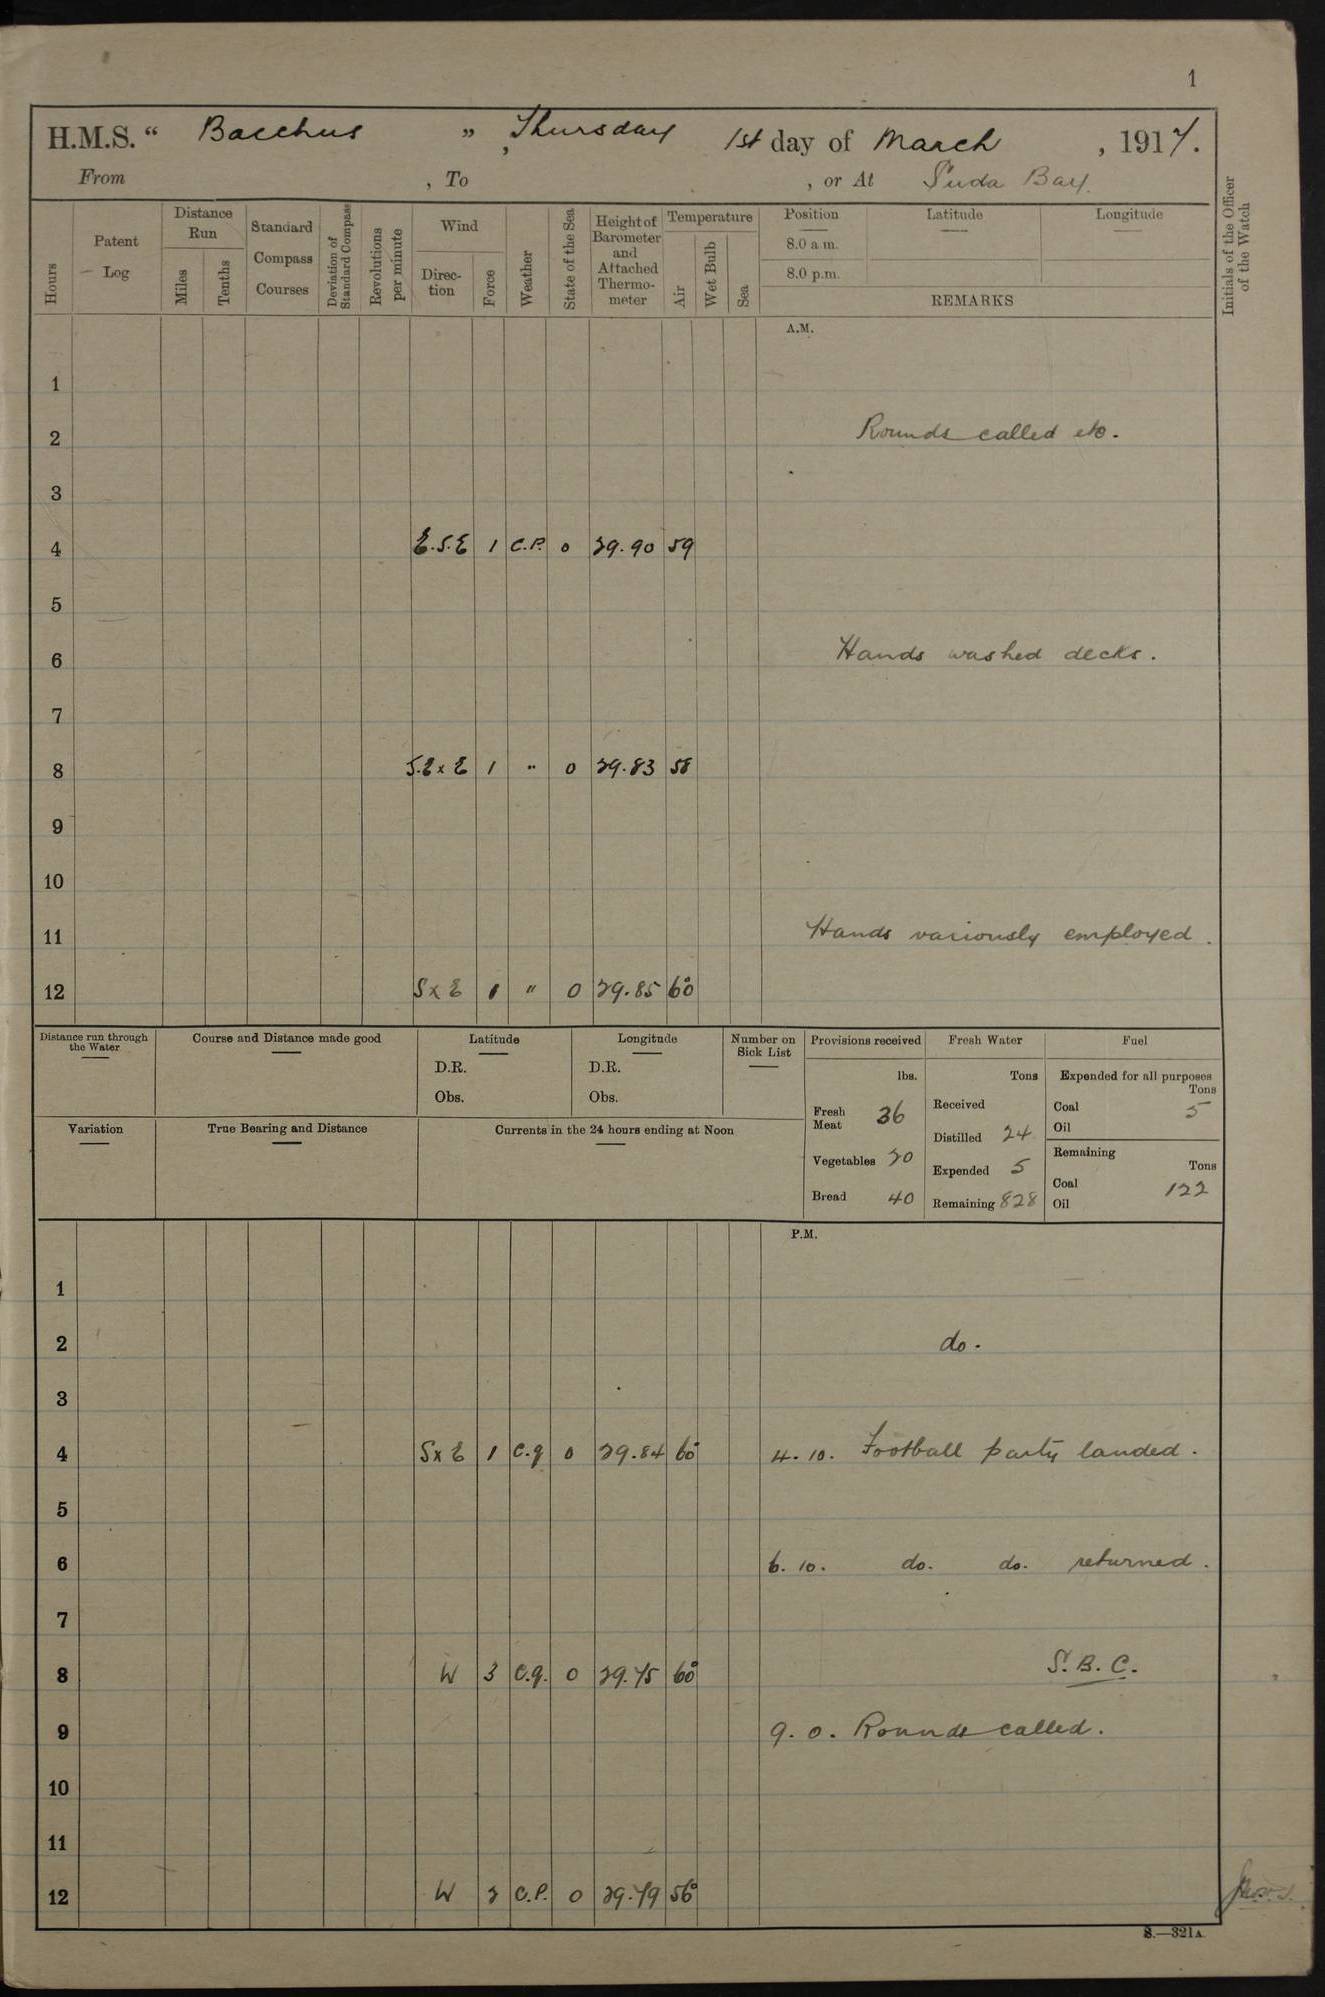 1
H.M.S. “ Bacchus ”, Thursday 1st day of March, 1917.
From , To , or At Suda Bay.
Hours
Patent Log
Distance Run
Miles
Tenths
Standard Compass Courses
Deviation of Standard Compass
Revolutions per minute
Wind
Direction
Force
Weather
State of the Sea
Height of Barometer and Attached Thermometer
Temperature
Air
Wet Bulb
Sea
Position
8.0 a.m.
8.0 p.m.
Latitude
Longitude
REMARKS
Initials of the Officer of the Watch
A.M.
1
2 Rounds called etc.
3
4 E.S.E 1 C.P. 0 29.90 59
5
6 Hands washed decks.
7
8 S.E x E 1 " 0 29.83 58
9
10
11 Hands variously employed.
12 S x E 1 " 0 29.85 60°
Distance run through the Water
Course and Distance made good
Latitude
D.R.
Obs.
Longitude
D.R.
Obs.
Number on Sick List
Provisions received
lbs.
Fresh Meat 36
Vegetables 20
Bread 40
Fresh Water
Tons
Received
Distilled 24
Expended 5
Remaining 828
Fuel
Expended for all purposes
Tons
Coal 5
Oil
Remaining
Tons
Coal 122
Oil
Variation
True Bearing and Distance
Currents in the 24 hours ending at Noon
P.M.
1
2 do.
3
4 S x E 1 C.q 0 29.84 60° 4.10. Football party landed.
5
6 6.10. do. do. returned.
7
8 W 3 C.q. 0 29.75 60° S.B.C.
9 9.0. Rounds called.
10
11
12 W 2 C.P. 0 29.79 56°
S.—321A.